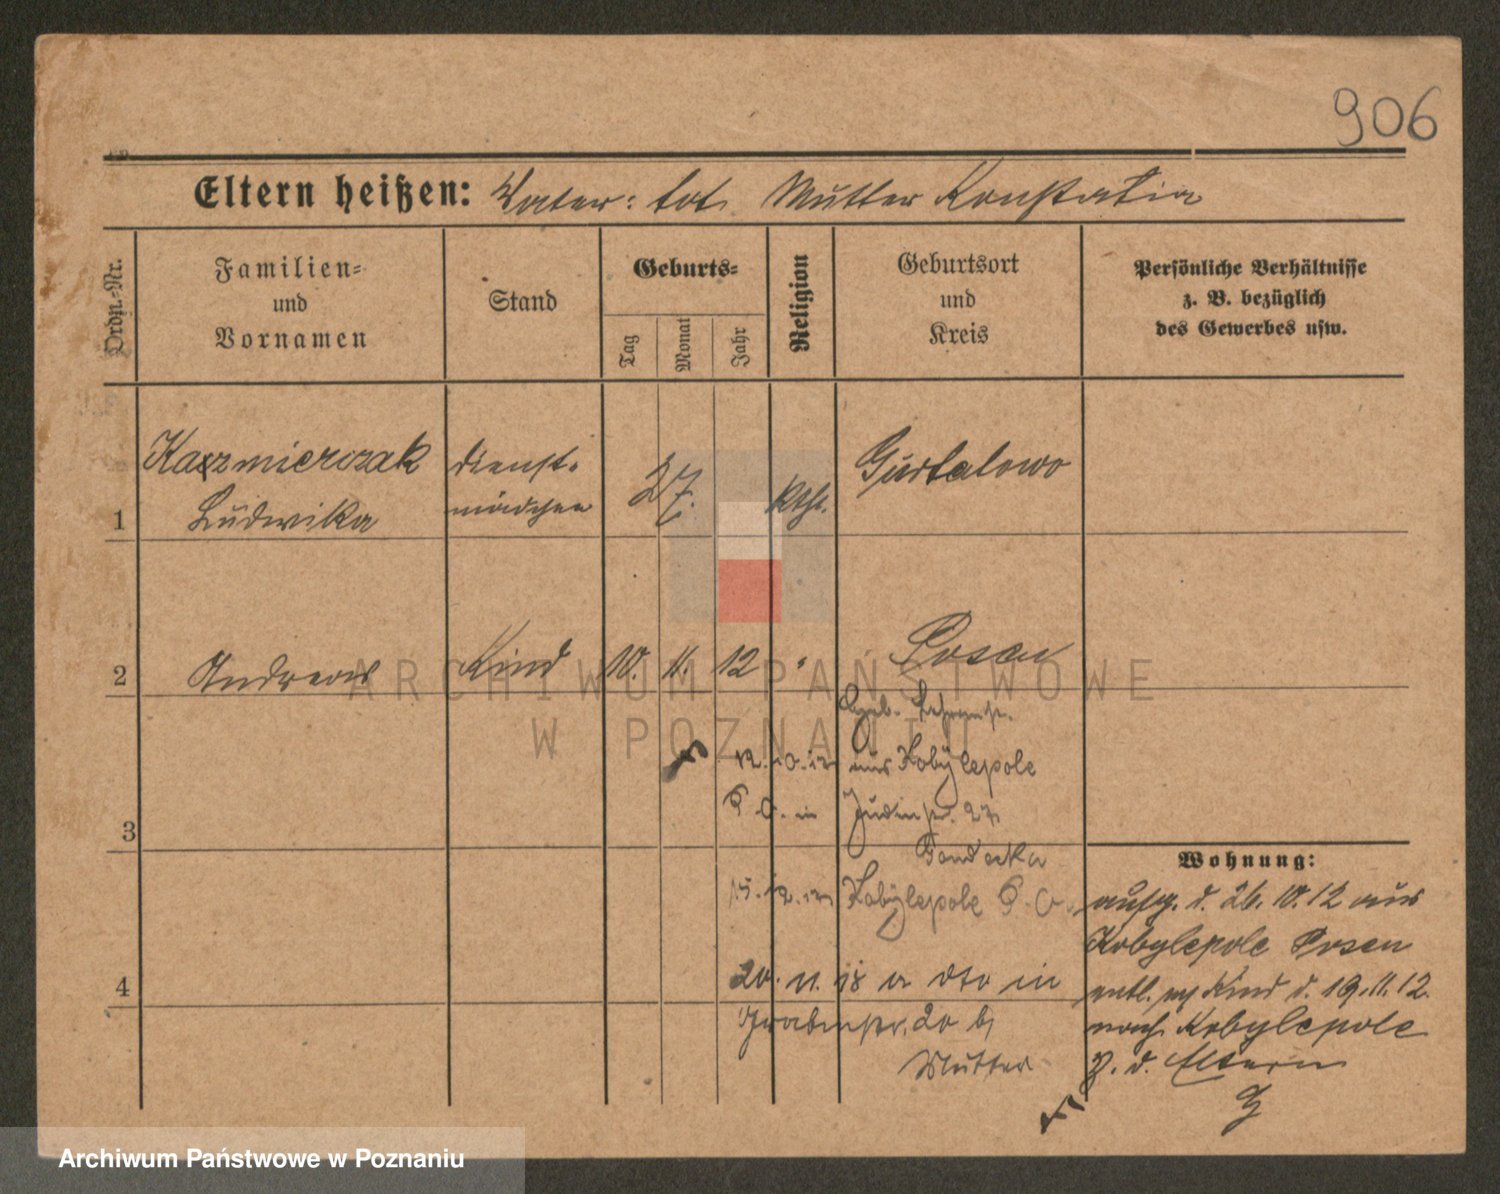 906
Eltern heißen: Vater: tot. Mutter Konstatia
Ordn.-Nr.
Familien-
und
Vornamen
Stand
Geburts-
Tag
Monat
Jahr
Religion
Geburtsort
und
Kreis
Persönliche Verhältnisse
z. B. bezüglich
des Gewerbes usw.
1
Kazmierczak
Ludwika
Dienst-
mädchen
27.
Kthl.
Gurtalowo
2
Andreas
Kind
10. 11. 12
Posen
12.10.12 aus Kobylepole
in
3
15.12.12 Kobylepole
4
20. 11. 18 dto in
Grabenstr. 20 b/
Mutter
Wohnung:
aufg. d. 26. 10. 12 aus
Kobylepole Posen
entl. Kind d. 19. 11. 12.
nach Kobylepole
z. d. Eltern
ARCHIWUM PAŃSTWOWE
W POZNANIU
Archiwum Państwowe w Poznaniu